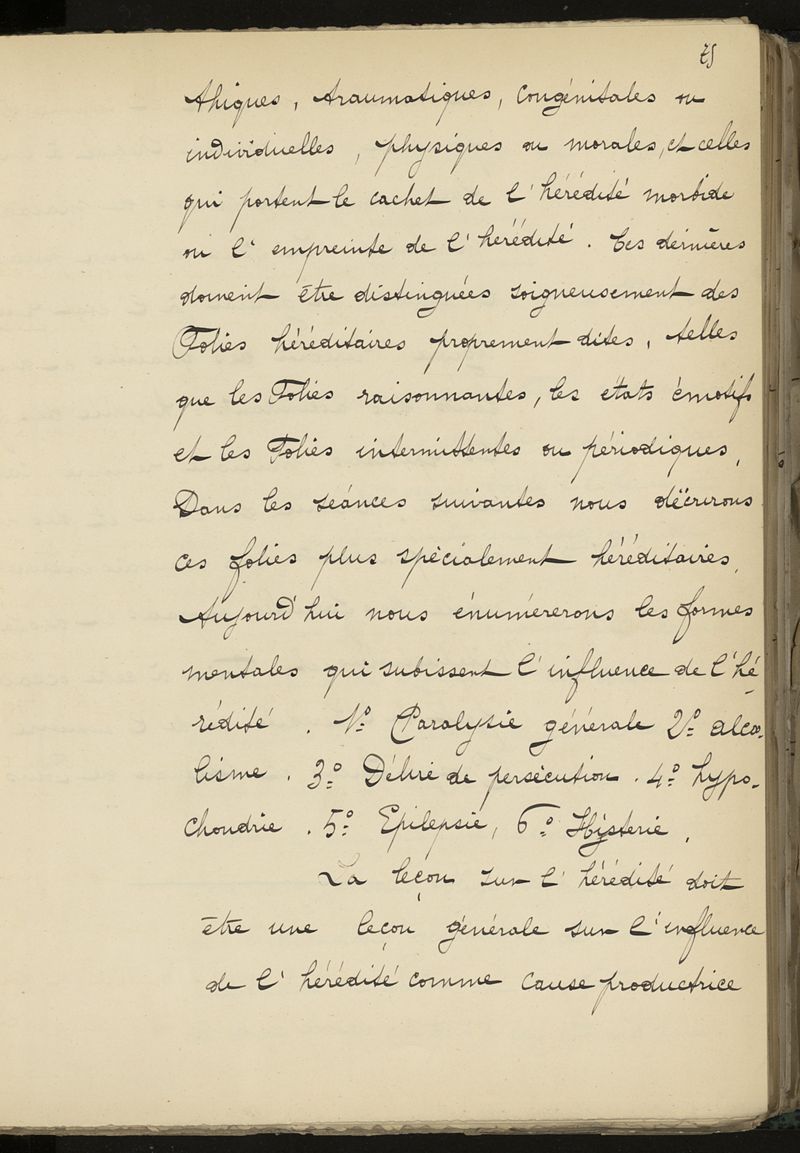 75
thiques, traumatiques, congénitales ou
individuelles, physiques ou morales, et celles
qui portent le cachet de l'hérédité morbide
ou l'empreinte de l'hérédité. Ces dernières
doivent être distinguées soigneusement des
Folies héréditaires proprement dites, telles
que les Folies raisonnantes, les états émotifs
et les Folies intermittentes ou périodiques,
Dans les séances suivantes nous décrirons
ces folies plus spécialement héréditaires,
Aujourd'hui nous énumérerons les formes
mentales qui subissent l'influence de l'hé-
rédité. 1º Paralysie générale 2º alcoo-
lisme. 3º Délire de persécution. 4º hypo-
chondrie. 5º Epilepsie, 6º Hystérie,
La leçon sur l'hérédité doit
être une leçon générale sur l'influence
de l'hérédité comme cause productrice